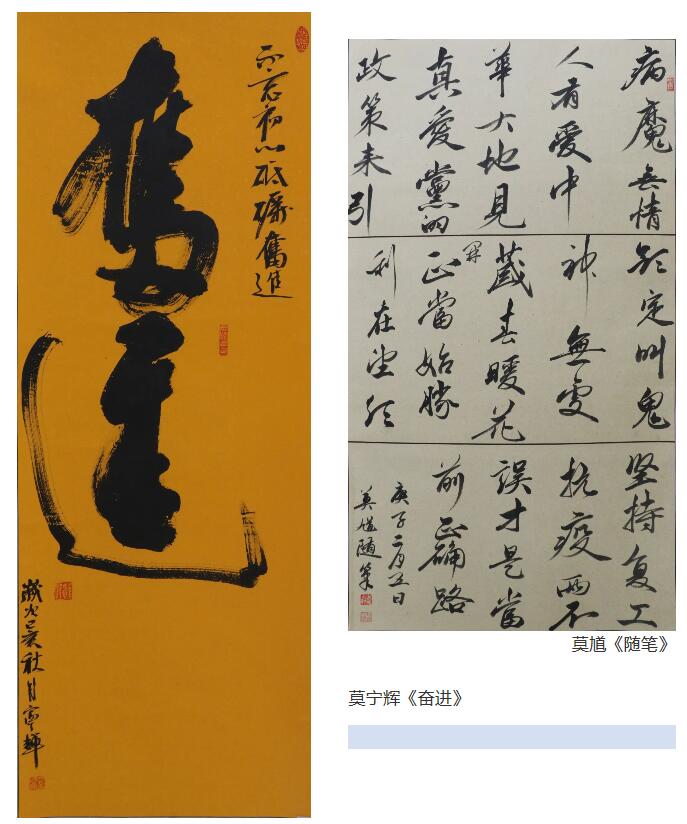 不忘初心砥礪奮進
奮進
歲次己亥秋月寧輝
病魔无情
人有愛中
華大地見
真愛黨的
政策来引
领定叫鬼
神無處
藏春暖花
開
正當始勝
利在望
坚持复工
抗疫两不
誤才是當
前正确路
庚子二月五日
莫馗随筆
莫馗《随笔》
莫宁辉《奋进》